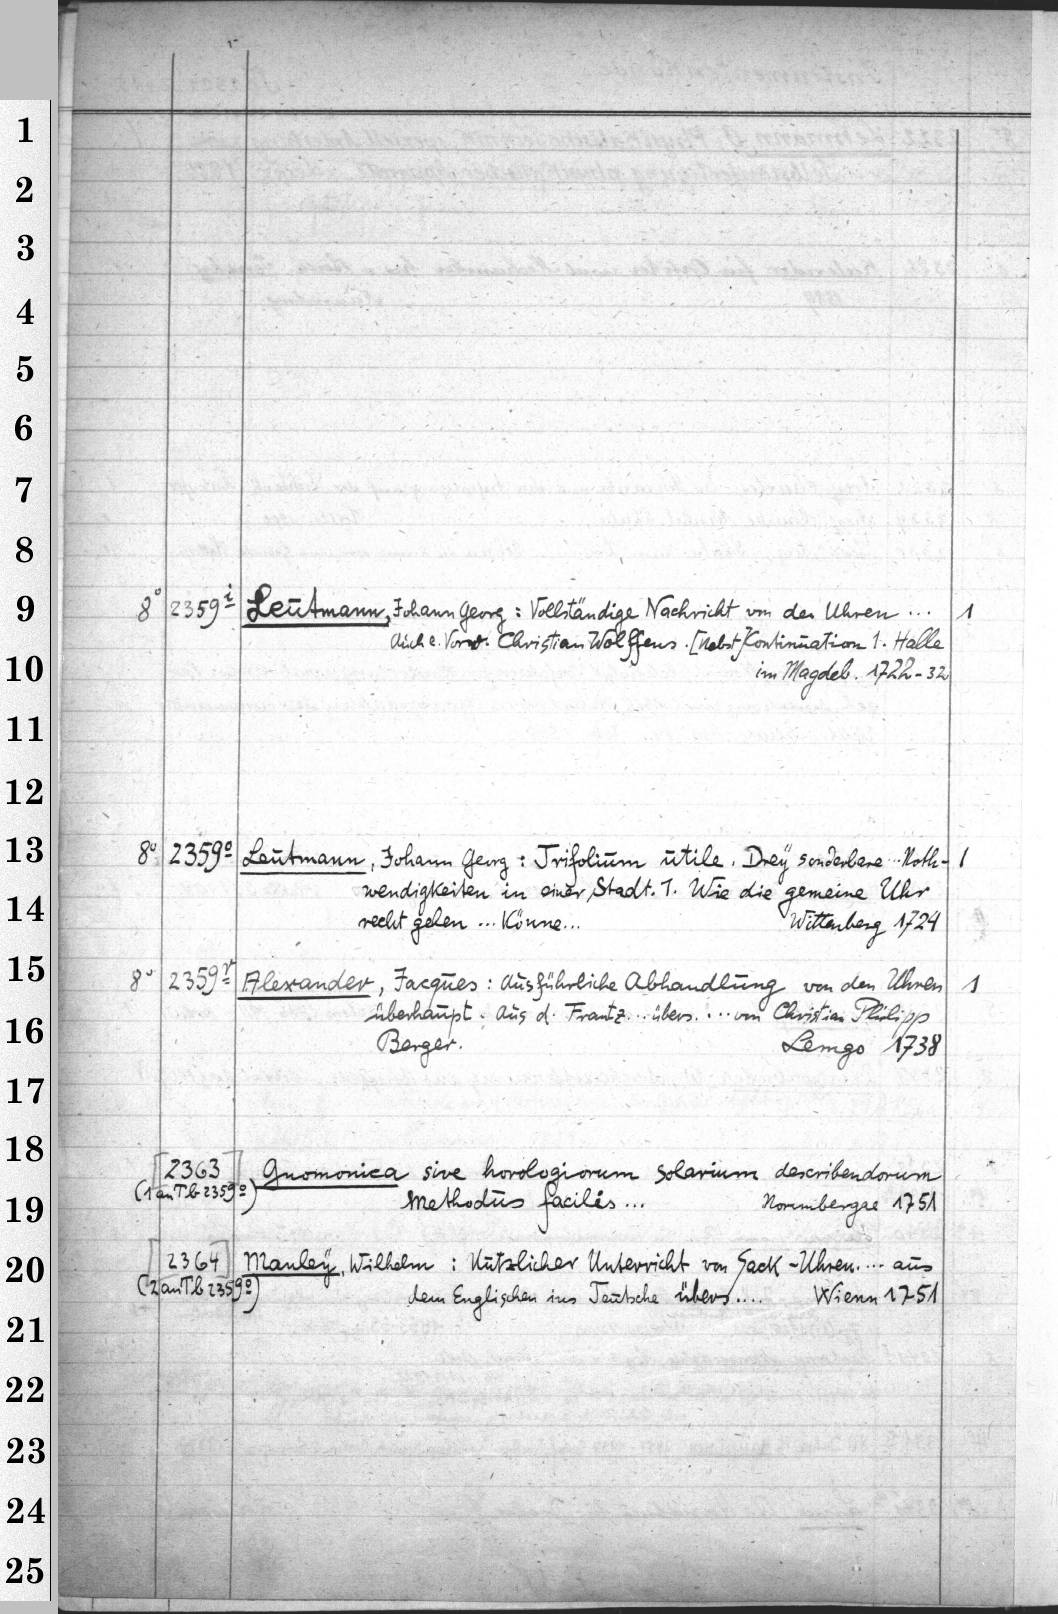 1
2
3
4
5
6
7
8
9 8° 2359 i Leutmann, Johann Georg : Vollständige Nachricht von den Uhren ... 1
Auch e. Vorr. Christian Wolffens. [Nebst] Continuation 1. Halle
10 im Magdeb. 1722-32
11
12
13 8° 2359 o Leutmann, Johann Georg : Trifolium utile. Dreÿ sonderbare ... Noth- 1
14 wendigkeiten in einer Stadt. 1. Wie die gemeine Uhr
recht gehen ... Könne... Wittenberg 1724
15 8° 2359 r Alexander, Jacques : Ausführliche Abhandlung von den Uhren 1
16 überhaupt. Aus d. Frantz. .. übers. ... von Christian Philipp
Berger. Lemgo 1738
17
18 [2363] Gnomonica sive horologiorum solarium describendorum
19 (1 an Tb 2359 o) Methodus facilis ... Norimbergae 1751
20 [2364] Manleÿ, Wilhelm : Nutzlicher Unterricht von Sack-Uhren.... aus
(2 an Tb 2359 o) dem Englischen ins Teutsche übers.... Wienn 1751
21
22
23
24
25